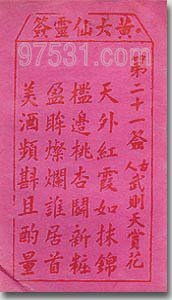 黃大仙靈簽
97531.com
第二十一簽 古人 武則天賞花
天外紅霞如抹錦
檻邊桃杏鬭新粧
盈眸燦爛誰居首
美酒頻斟且酌量